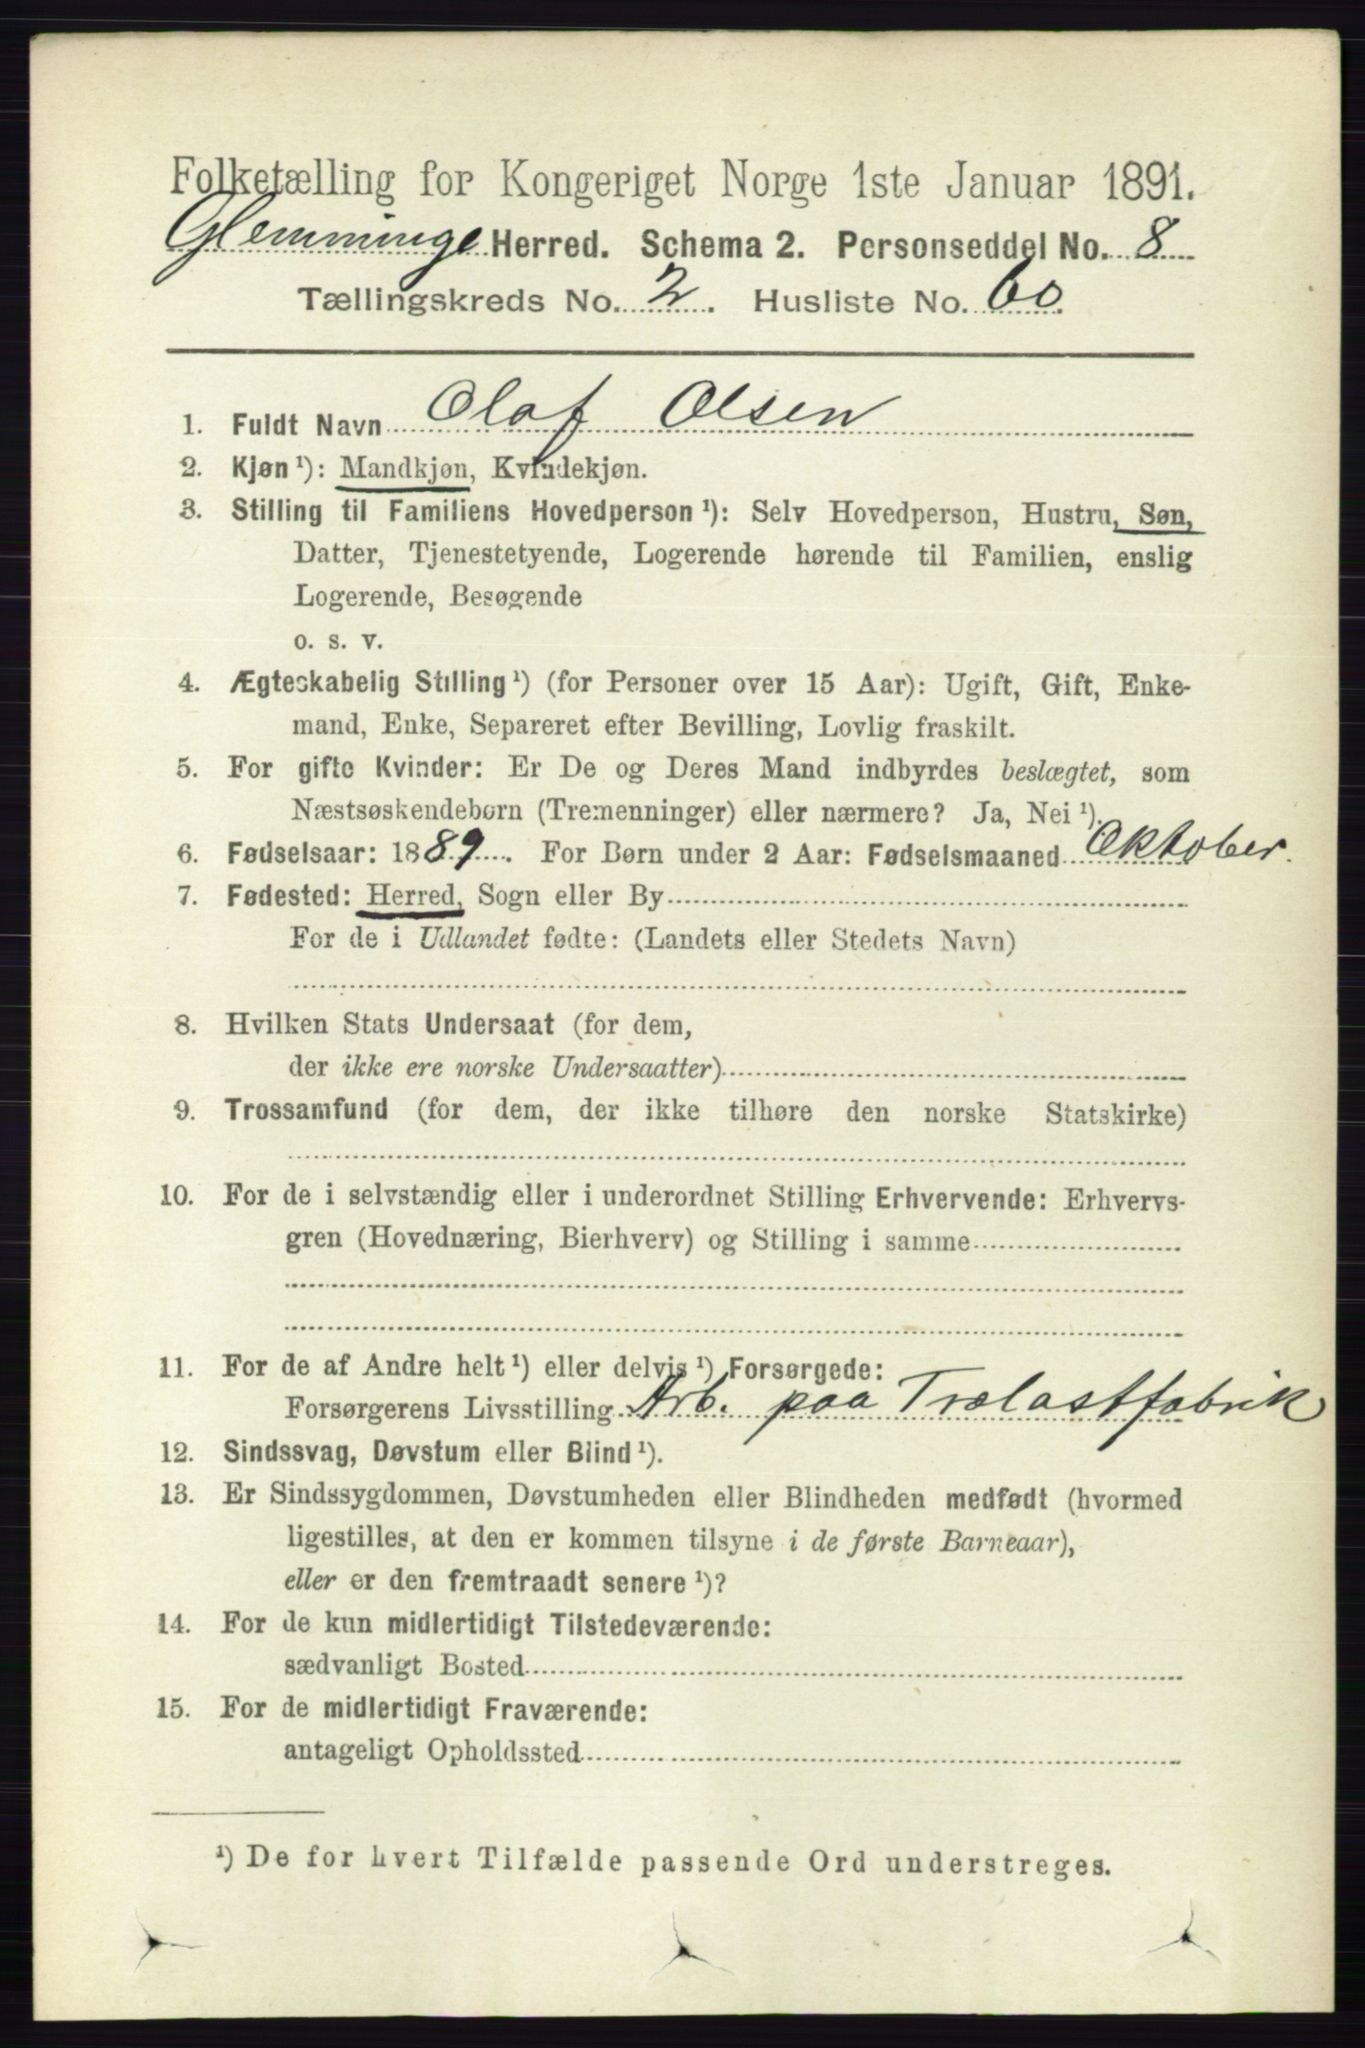 Folketælling for Kongeriget Norge 1ste Januar 1891.
Glemminge Herred. Schema 2. Personseddel No. 8
Tællingskreds No. 2. Husliste No. 60.
1. Fuldt Navn Olaf Olsen
2. Kjøn ¹): Mandkjøn, Kvindekjøn.
3. Stilling til Familiens Hovedperson ¹): Selv Hovedperson, Hustru, Søn,
Datter, Tjenestetyende, Logerende hørende til Familien, enslig
Logerende, Besøgende
o. s. v.
4. Ægteskabelig Stilling ¹) (for Personer over 15 Aar): Ugift, Gift, Enke-
mand, Enke, Separeret efter Bevilling, Lovlig fraskilt.
5. For gifte Kvinder: Er De og Deres Mand indbyrdes beslægtet, som
Næstsøskendebørn (Tremenninger) eller nærmere? Ja, Nei ¹).
6. Fødselsaar: 1889. For Børn under 2 Aar: Fødselsmaaned Oktober.
7. Fødested: Herred, Sogn eller By
For de i Udlandet fødte: (Landets eller Stedets Navn)
8. Hvilken Stats Undersaat (for dem,
der ikke ere norske Undersaatter)
9. Trossamfund (for dem, der ikke tilhøre den norske Statskirke)
10. For de i selvstændig eller i underordnet Stilling Erhvervende: Erhvervs-
gren (Hovednæring, Bierhverv) og Stilling i samme
11. For de af Andre helt ¹) eller delvis ¹) Forsørgede:
Forsørgerens Livsstilling Arb. paa Trælastfabrik
12. Sindssvag, Døvstum eller Blind ¹).
13. Er Sindssygdommen, Døvstumheden eller Blindheden medfødt (hvormed
ligestilles, at den er kommen tilsyne i de første Barneaar),
eller er den fremtraadt senere ¹)?
14. For de kun midlertidigt Tilstedeværende:
sædvanligt Bosted
15. For de midlertidigt Fraværende:
antageligt Opholdssted
¹) De for hvert Tilfælde passende Ord understreges.